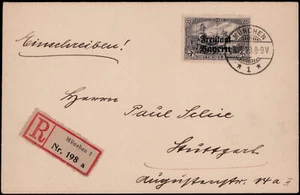 Einschreiben!
Freistaat
Bayern
MÜNCHEN
* 1 *
R
München 1
Nr. 198 a
Herrn
Paul
Stuttgart
Augustenstr.